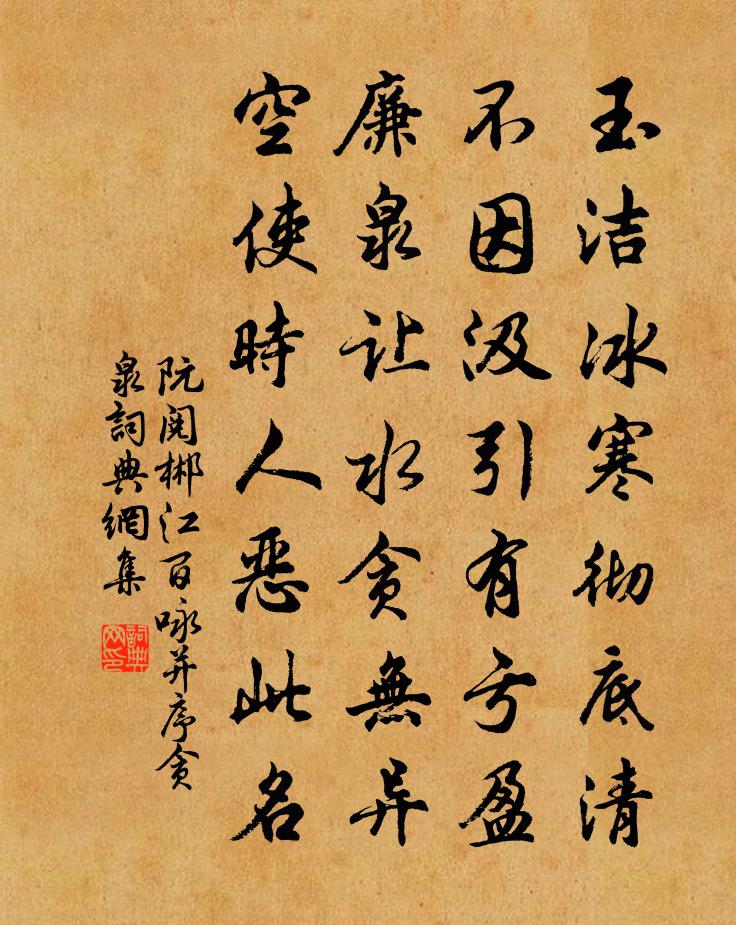 玉洁冰寒彻底清
不因汲引有亏盈
廉泉让水贪無异
空使時人恶此名
阮阅郴江百咏并序贪
泉詞典網集
詞典
网印